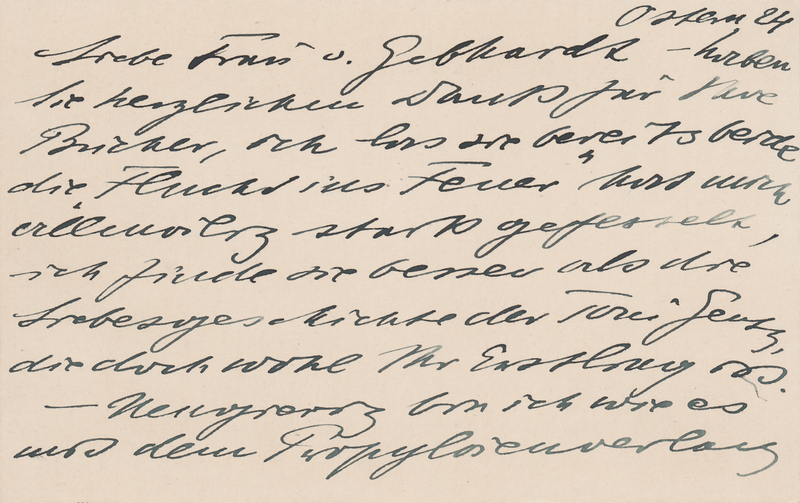 Ostern 24
Liebe Frau v. Gebhardt – haben
Sie herzlichen Dank für Ihre
Bücher, ich las sie bereits beide
die "Flucht ins Feuer" hat mich
stark gefesselt,
ich finde sie besser als die
Liebesgeschichte der Toni Gentz,
die doch wohl Ihr Erstling ist.
– Neugierig bin ich wie es
mit dem Propyläenverlag